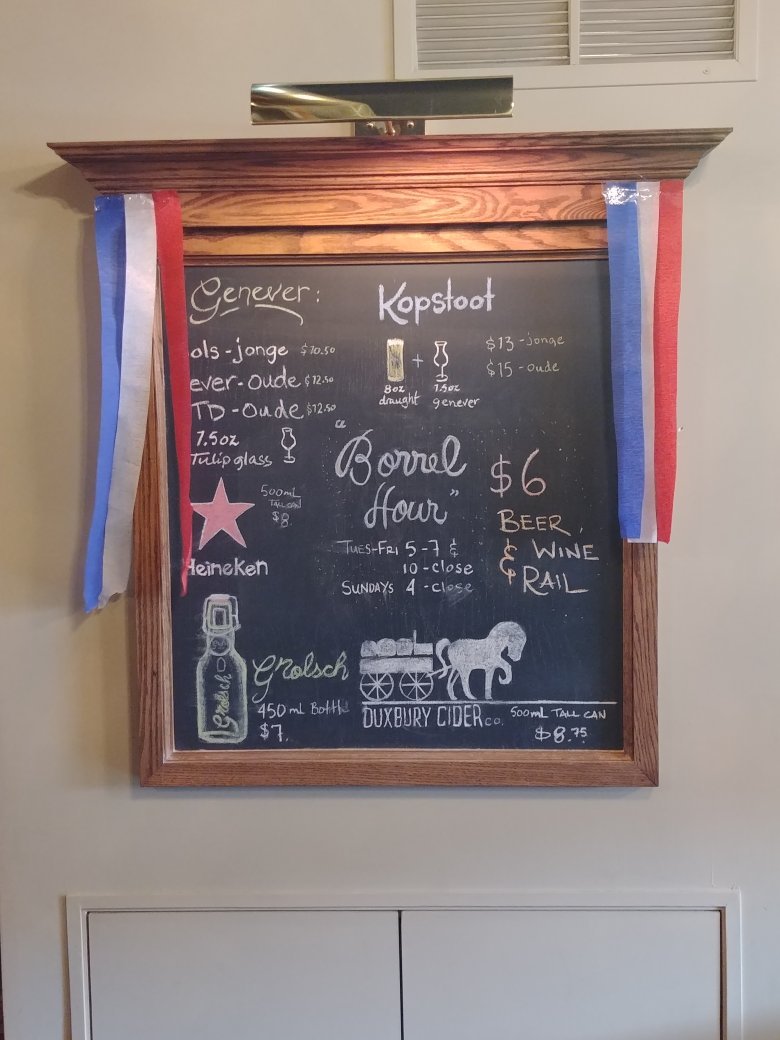 Genever:
ols-jonge $10.50
ever-oude $12.50
TD-oude $12.50
1.5oz
Tulip glass
Kopstoot
+
8oz
draught
1.5oz
genever
$13-jonge
$15-oude
"Borrel
Hour"
Tues-Fri 5-7 &
10-close
Sundays 4-close
$6
Beer,
& Wine
Rail
500mL
Tall can
$8.
Heineken
Grolsch
Grolsch
450mL Bottle
$7.
DUXBURY CIDER co.
500mL Tall can
$8.75